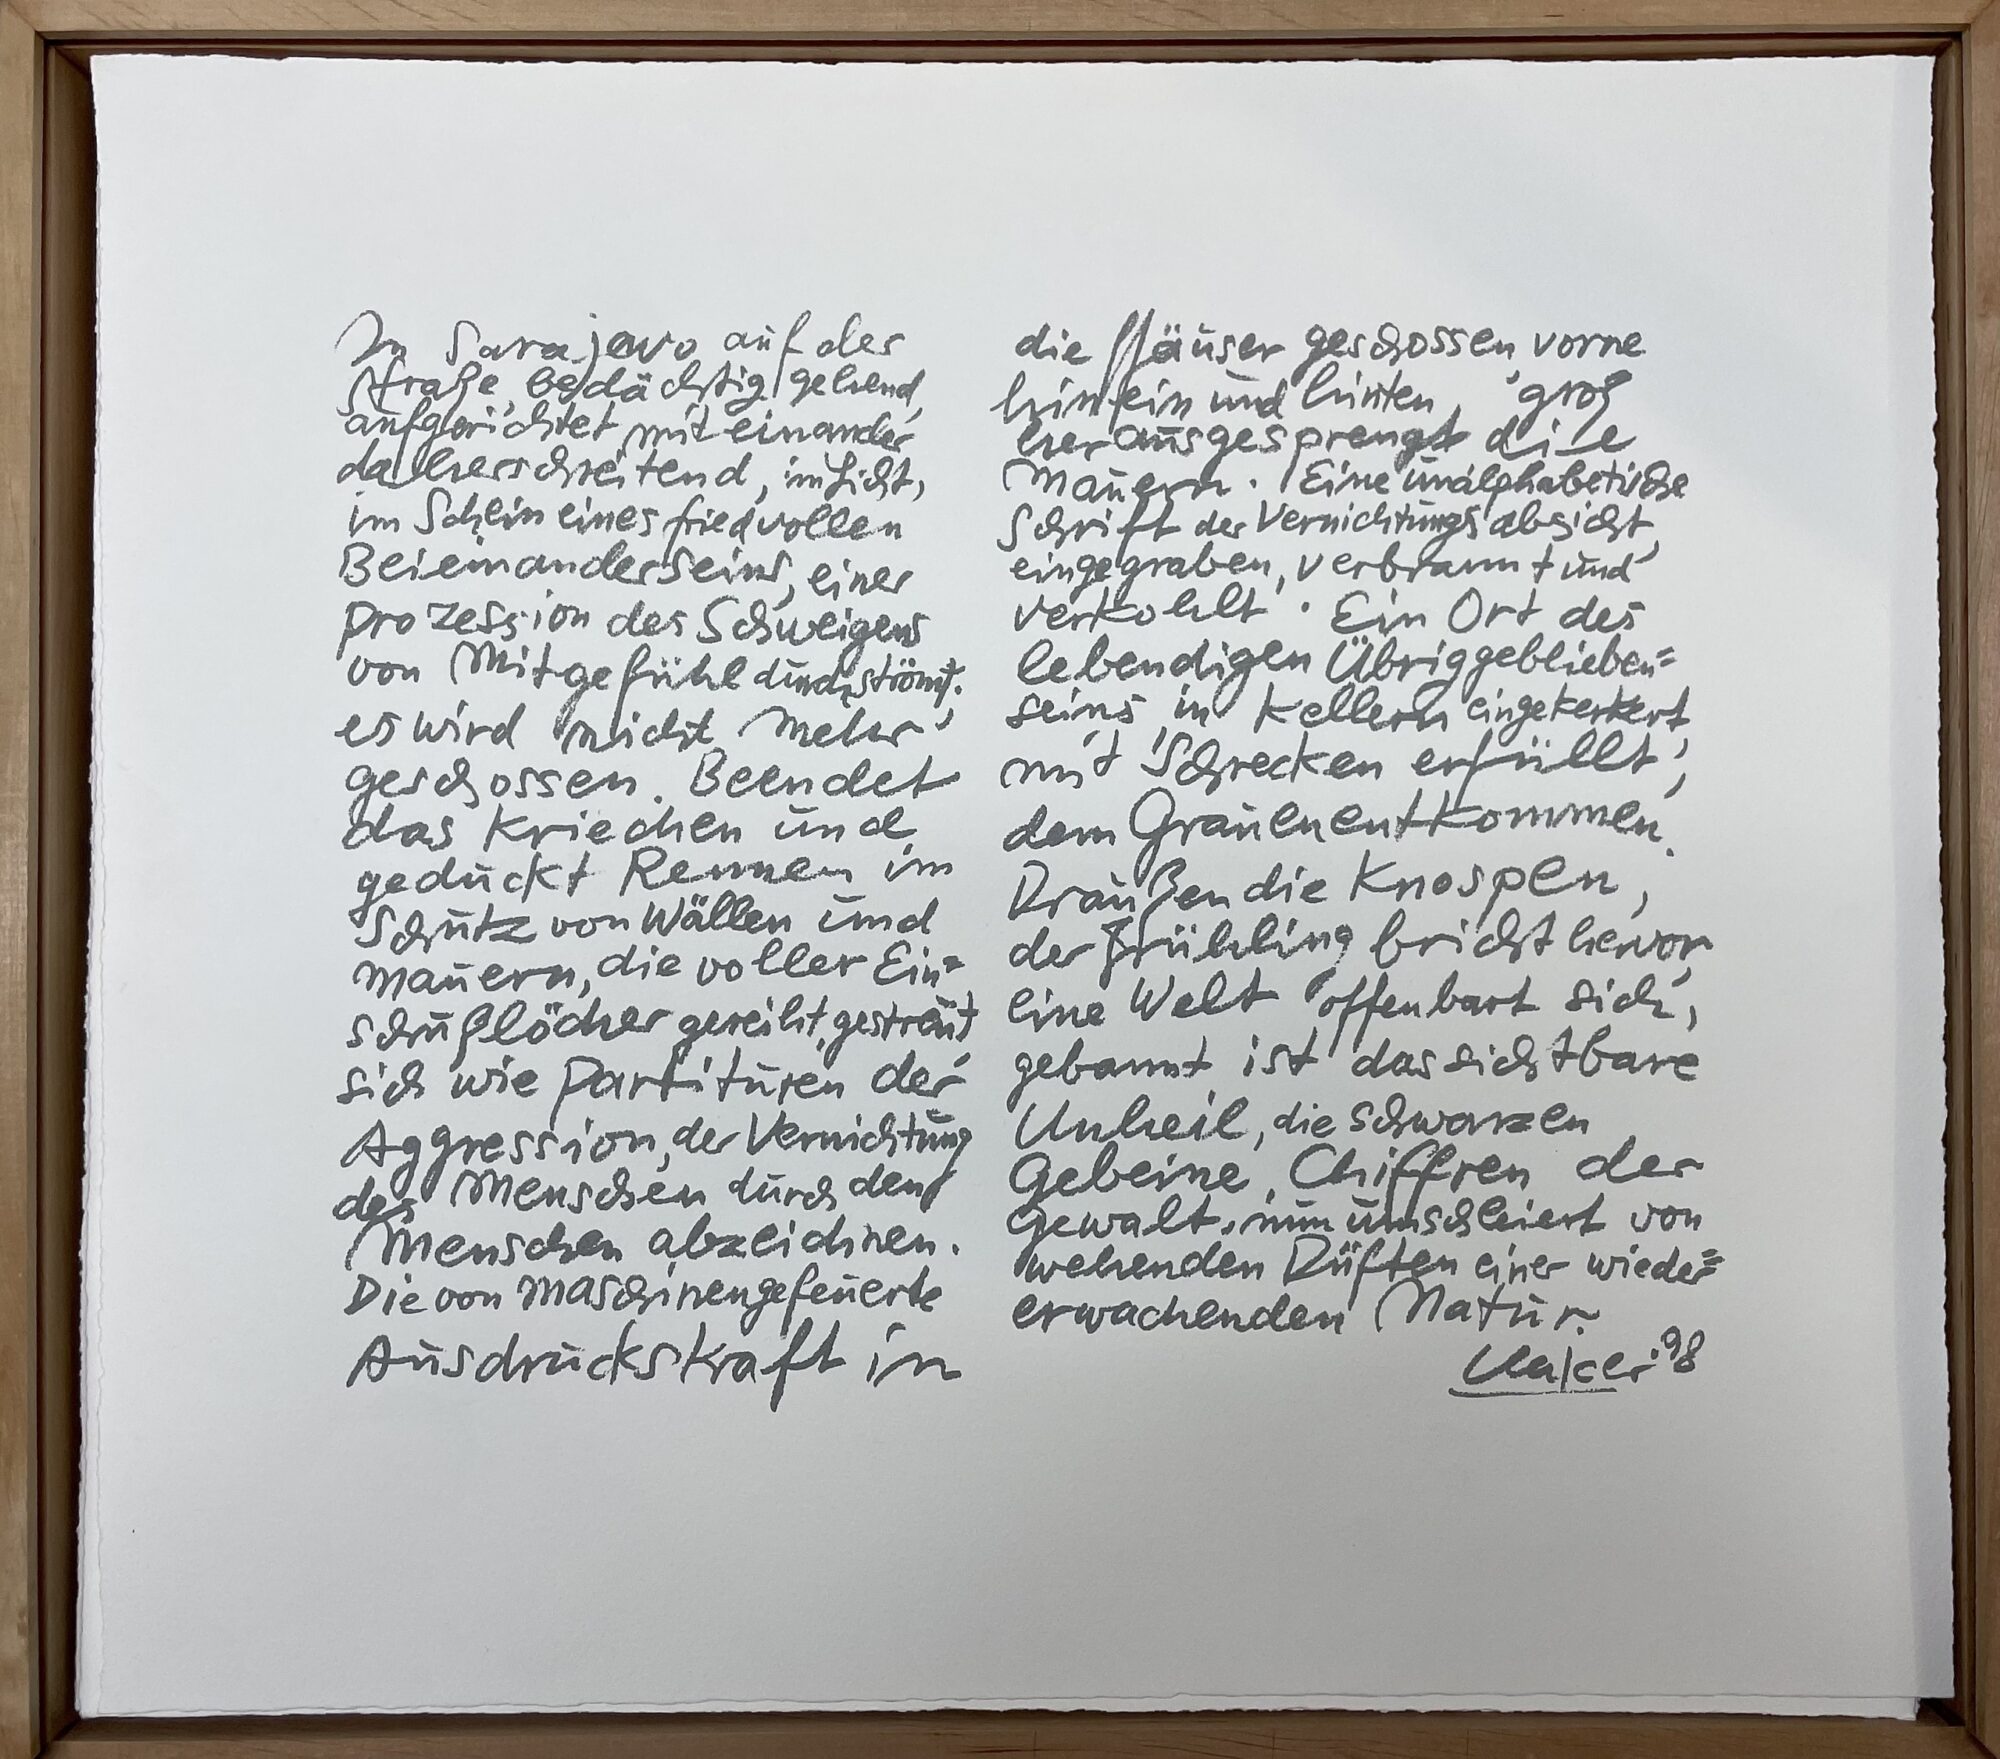 In Sarajevo auf der
Straße, bedächtig gehend,
aufgerichtet miteinander
daherschreitend, im Licht,
im Schein eines friedvollen
Beieinanderseins, einer
Prozession des Schweigens
von Mitgefühl durchströmt.
es wird nicht mehr
geschossen. Beendet
das Kriechen und
geduckt Rennen im
Schutz von Wällen und
Mauern, die voller Ein=
schußlöcher gereiht, gestreut
sich wie Partituren der
Aggression, der Vernichtung
des Menschen durch den
Menschen abzeichnen.
Die von Maschinengefeuerte
Ausdruckskraft in
die Häuser geschossen, vorne
hinein und hinten, groß
herausgesprengt die
Mauern. Eine unalphabetische
Schrift der Vernichtungsabsicht,
eingegraben, verbrannt und
verkohlt. Ein Ort des
lebendigen Übriggeblieben=
seins, in Kellern eingekerkert,
mit Schrecken erfüllt,
dem Grauen entkommen.
Draußen die Knospen,
der Frühling bricht hervor,
eine Welt offenbart sich,
gebannt ist das sichtbare
Unheil, die schwarzen
Gebeine, Chiffren der
Gewalt, nun umschleiert von
wehenden Düften einer wieder=
erwachenden Natur.
Uecker '98